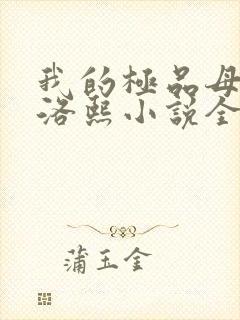 我的極品母
洛熙小說全
蒲玉金